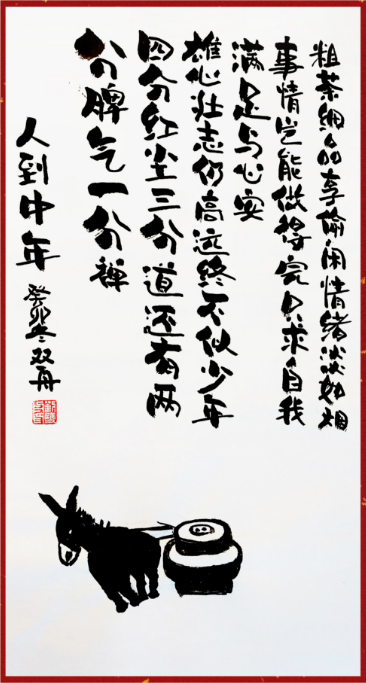 粗茶细品享偷闲情绪淡如烟
事情岂能做得完只求自我
满足与心安
雄心壮志仍高远终不似少年
四分红尘三分道还有两
分脾气一分禅
人到中年
癸卯冬双舟